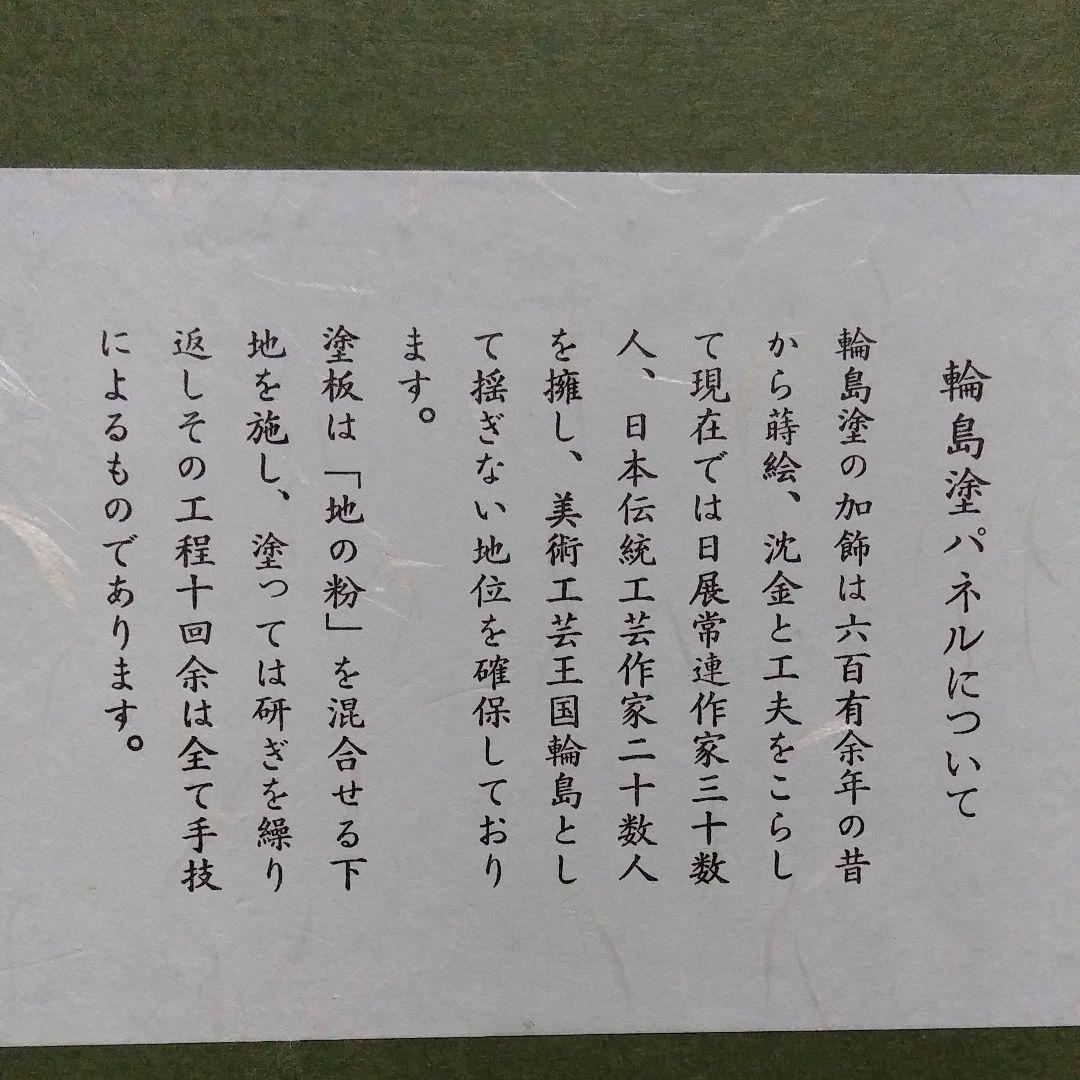 輪島塗パネルについて
輪島塗の加飾は六百有余年の昔
から蒔絵、沈金と工夫をこらし
て現在では日展常連作家三十数
人、日本伝統工芸作家二十数人
を擁し、美術工芸王国輪島とし
て揺ぎない地位を確保しており
ます。
塗板は「地の粉」を混合せる下
地を施し、塗っては研ぎを繰り
返しその工程十回余は全て手技
によるものであります。